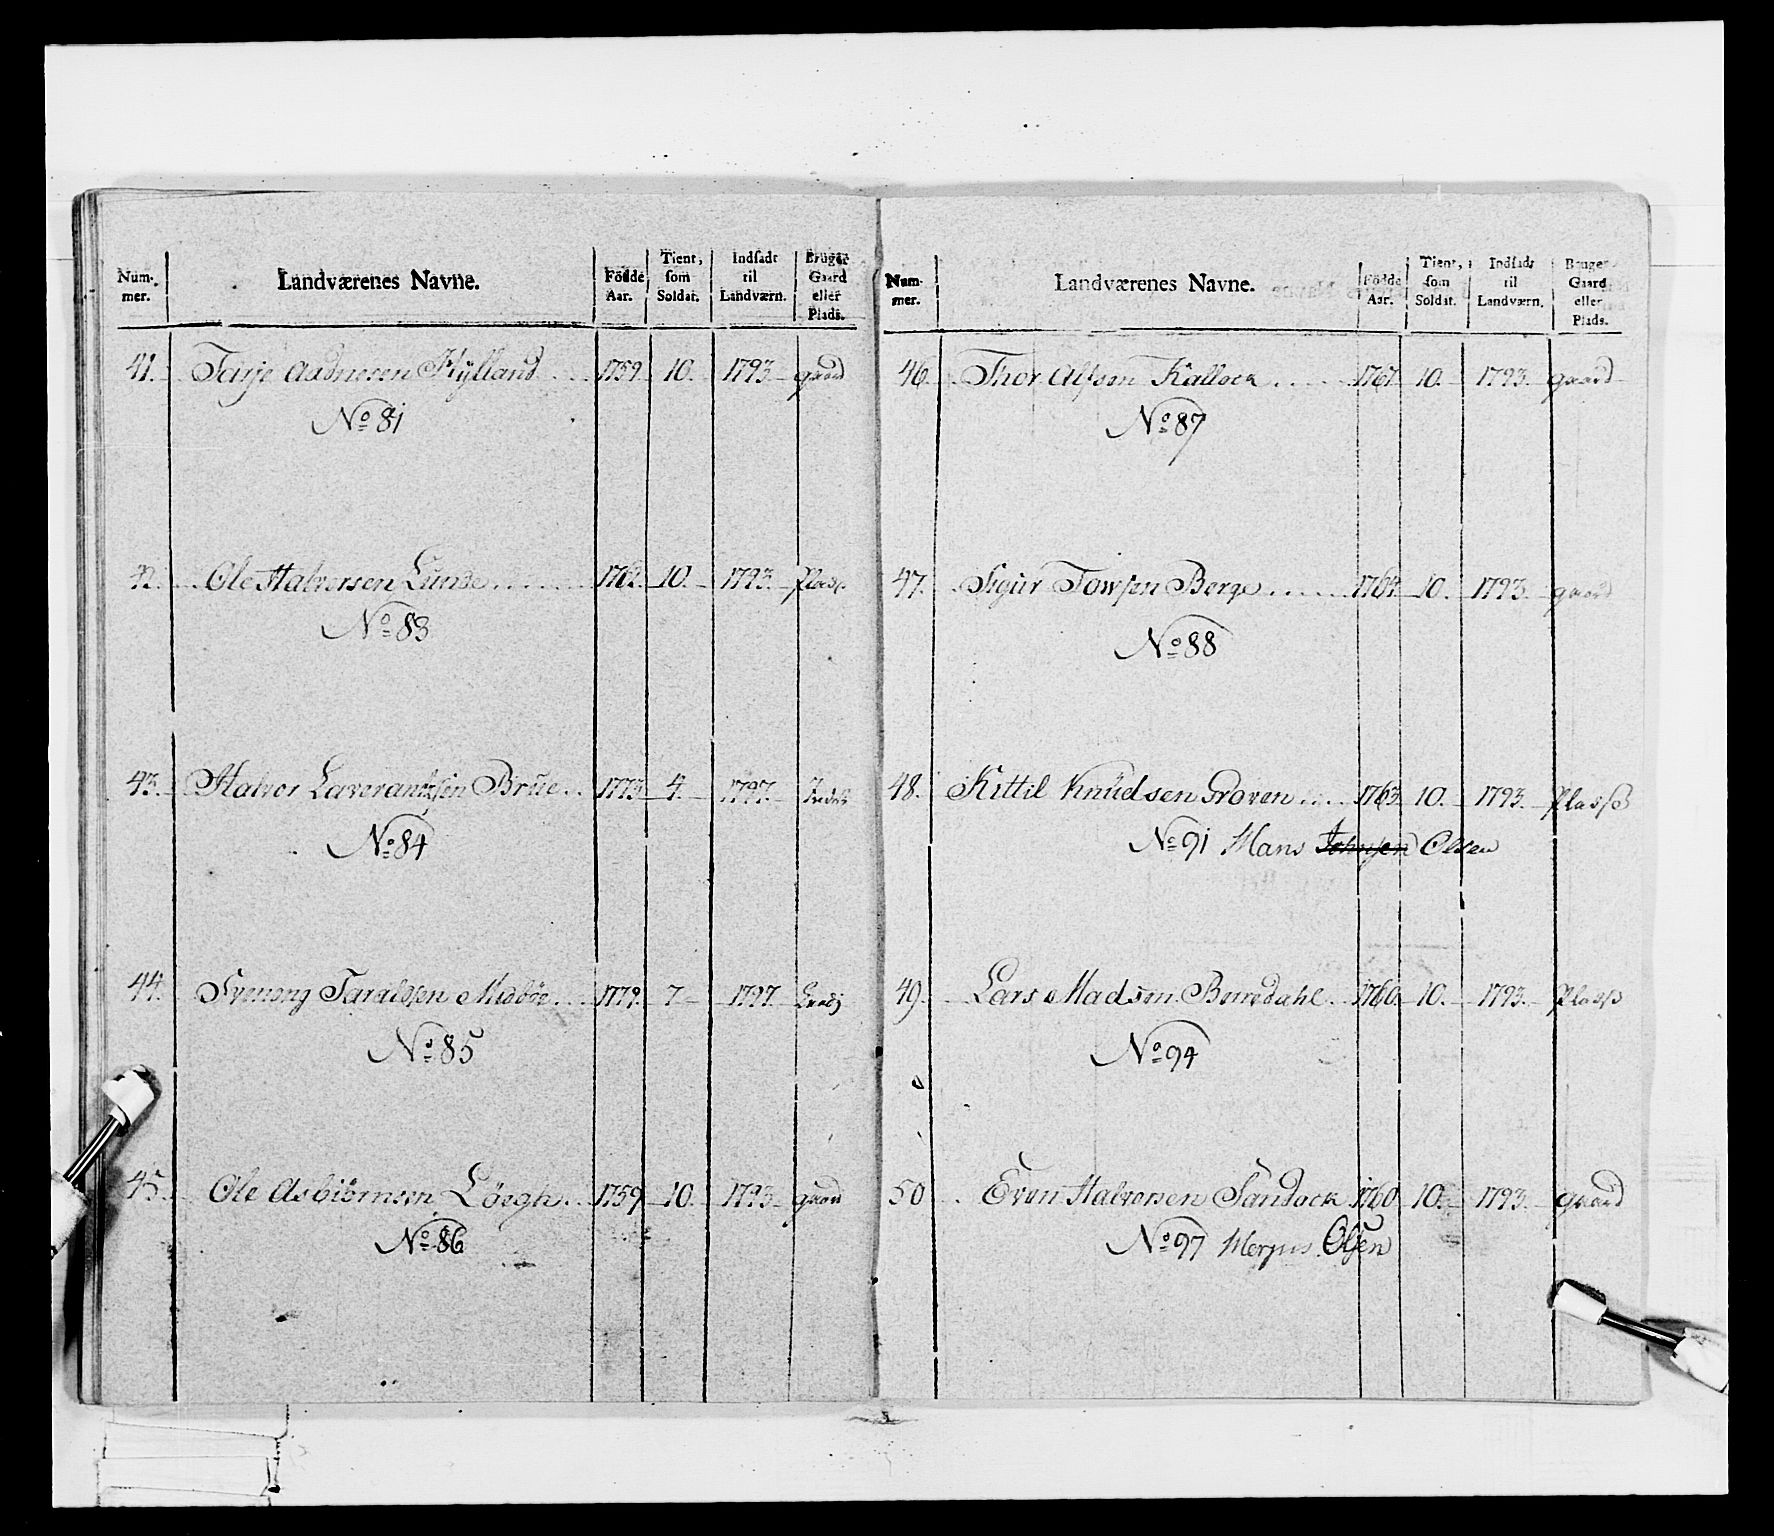 Num-mer. Landværenes Navne. Födde Aar. Tient, som Soldat. Indsadt til Landværn. Bruger Gaard eller Plads.
41. Tarje Aadnesen Kÿlland 1759 10. 1793 gaard
No 81
42. Ole Halvorsen Lunde 1762. 10. 1793. Plads
No 83
43. Halvor Laverantzsen Brue 1773 4. 1797.
No 84
44. Svenong Taraldsen Midböe 1779. 7 1797.
No 85
45. Ole Asbiörnsen Löegh 1759 10. 1793 gaard
No 86
Num-mer. Landværenes Navne. Födde Aar. Tient, som Soldat. Indsadt til Landværn. Bruger Gaard eller Plads.
46. Thor Alfson Kallock 1767 10. 1793. gaard
No 87
47. Sigur Towsen Berge 10. 1793. gaard
No 88
48. Kittil Knüdsen Groven 1763 10. 1793. Plads
No 91 Hans Johnsen Olsen
49. Lars Madsen Berredahl 1760. 10. 1793. Plads
No 94
50 Even Halvorsen Sandock 1760 10. 1793. gaard
No 97 Olsen